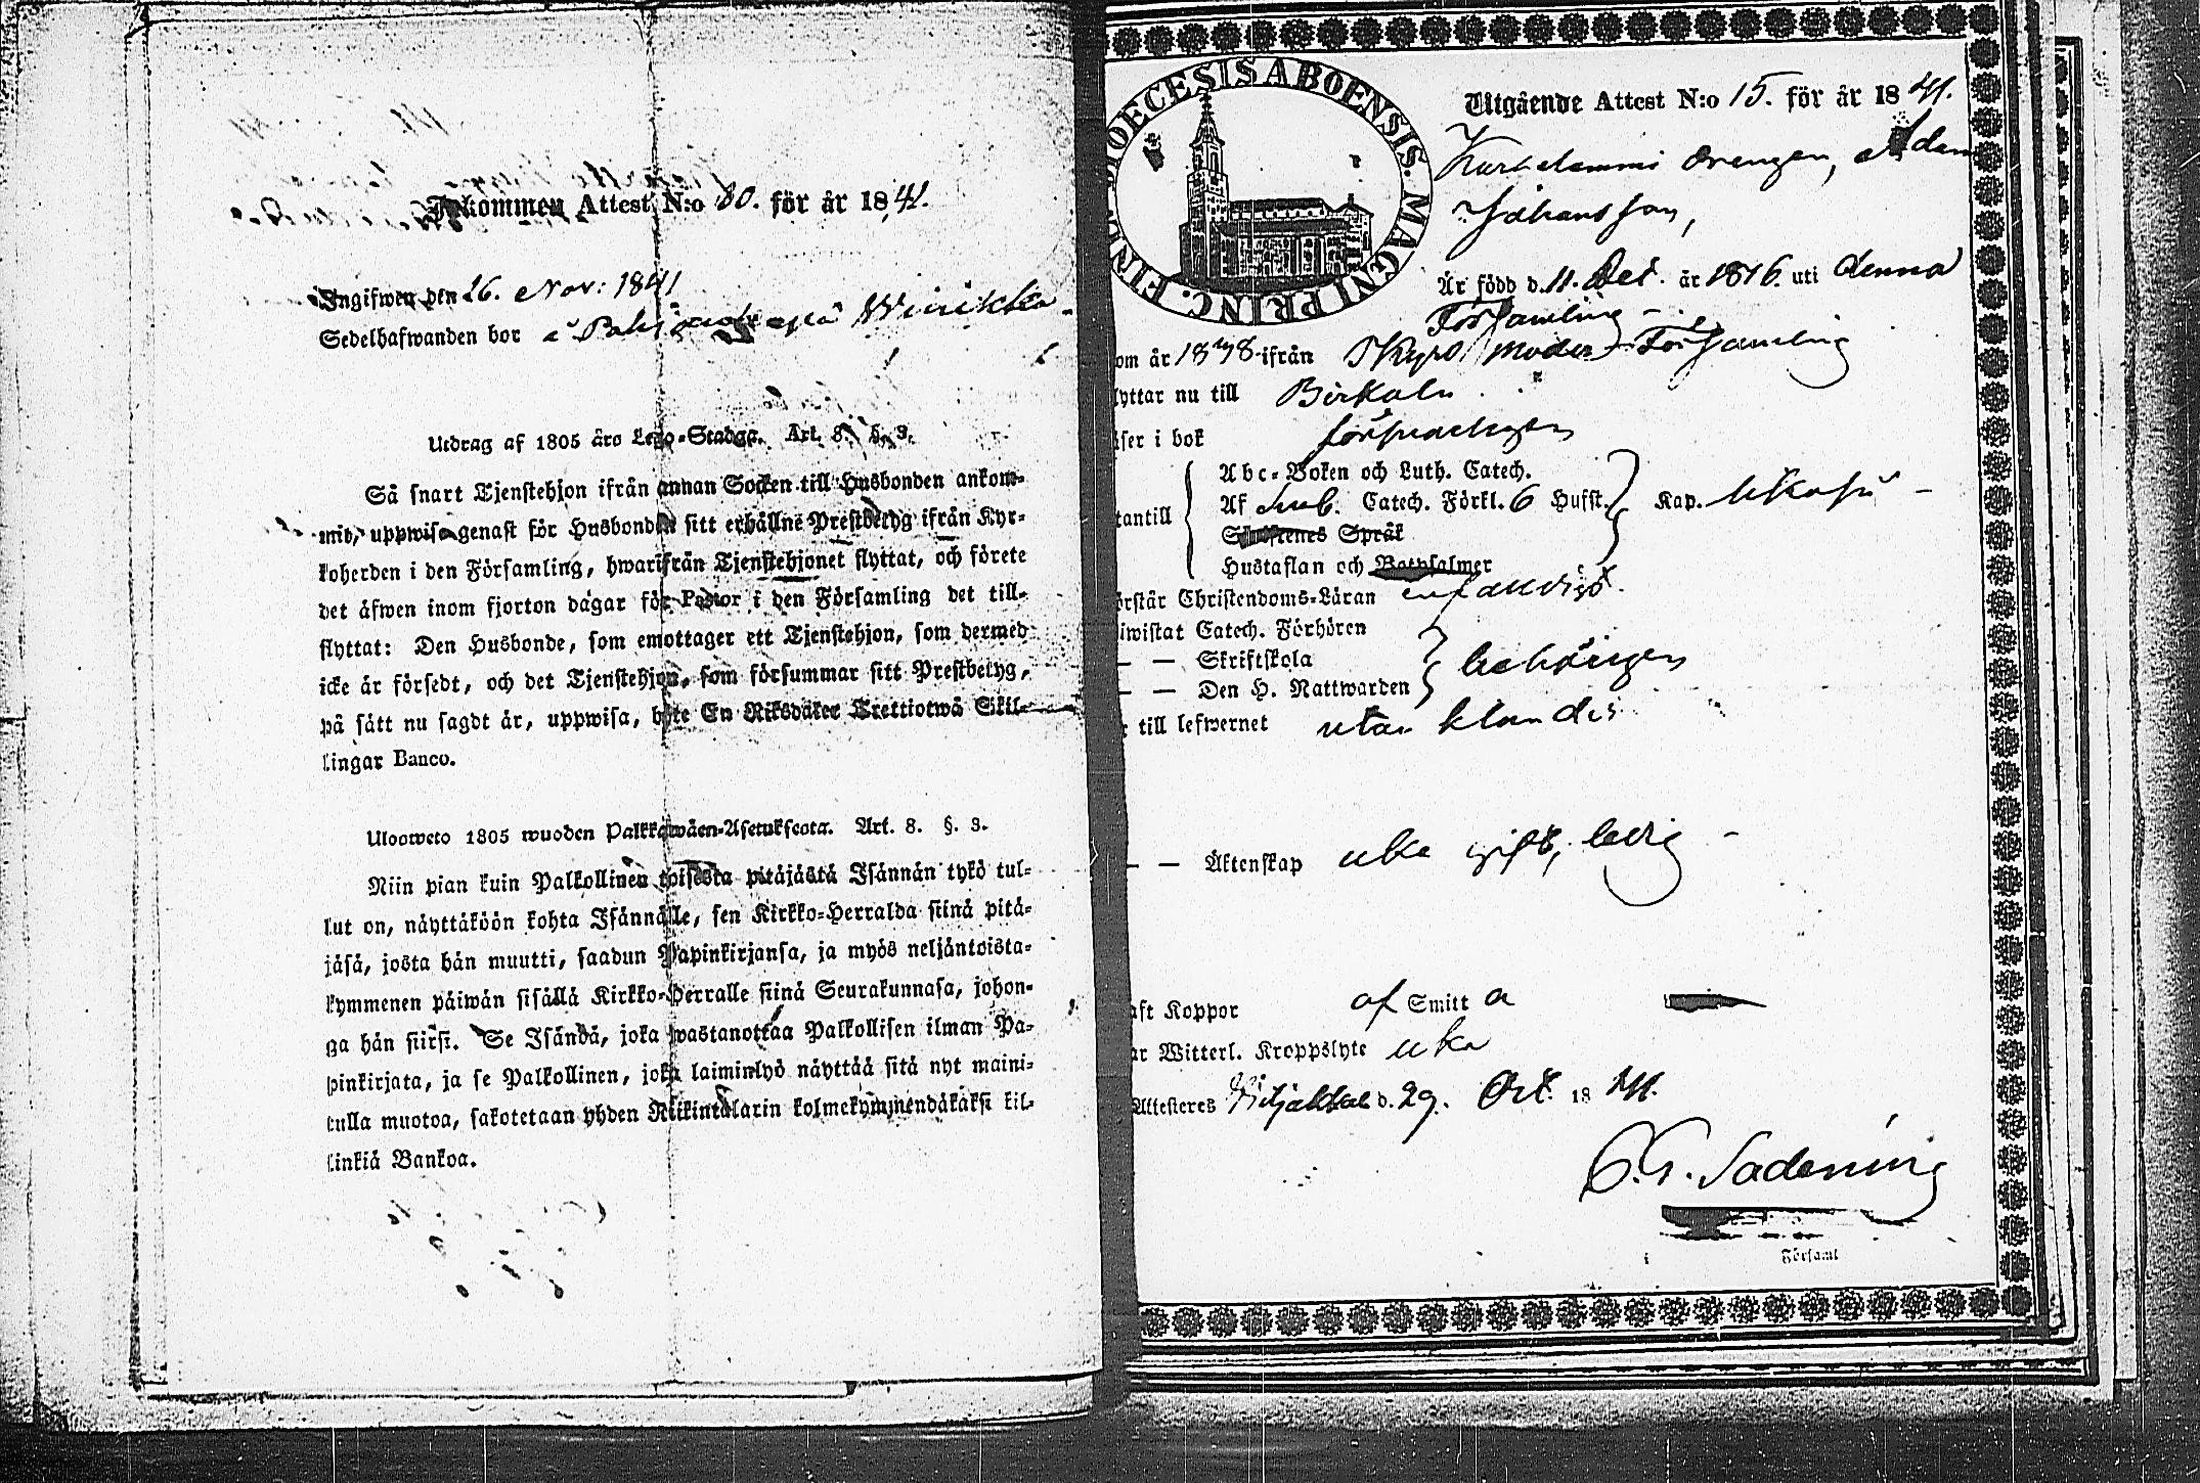 Inkommen Attest N:o 80. för år 1841.
Ingifwen den 26. Nov: 1841
Sedelhafwanden bor
Utdrag af 1805 års Lego-Stadga. Art. 8. §. 3.
Så snart Tjenstehjon ifrån annan Socken till Husbonden ankom-
mit, uppwise genast för Husbonden sitt erhållne Prestbetyg ifrån Kyr-
koherden i den Församling, hwarifrån Tjenstehjonet flyttat, och förete
det äfwen inom fjorton dagar för Pastor i den Församling det till-
flyttat: Den Husbonde, som emottager ett Tjenstehjon, som dermed
icke är försedt, och det Tjenstehjon, som försummar sitt Prestbetyg,
på sätt nu sagdt är, uppwisa, böte En Riksdaler Trettiotwå Skil-
lingar Banco.
Uloosweto 1805 wuoden Palkkawäen-Asetuksesta. Art. 8. §. 3.
Niin pian kuin Palkollinen toisesta pitäjästä Isännän tykö tul-
lut on, näyttäköön kohta Isännälle, sen Kirkko-Herralda siinä pitä-
jäsä, josta hän muutti, saadun Papinkirjansa, ja myös neljäntoista-
kymmenen päiwän sisällä Kirkko-Herralle siinä Seurakunnasa, johon-
ga hän siirsi. Se Isändä, joka wastanottaa Palkollisen ilman Pa-
pinkirjata, ja se Palkollinen, joka laiminlyö näyttää sitä nyt maini-
tulla muotoa, sakotetaan yhden Riikintalarin kolmekymmendäkaksi kil-
linkiä Bankoa.
DIOECESIS ABOENSIS. MAGNI PRINC. FINL.
Utgående Attest N:o 15. för år 1841.
Drengen, Adam
Johansson,
Är född d. 11. Oct. år 1816. uti denna
Församling
om år 1838 ifrån Ikyro Moder Församling
lyttar nu till Birkala
äser i bok försvarligen
Abc-Boken och Luth. Catech.
tantill Af Sveb. Catech. Förkl. 6 Hufst. Kap.
Skriftenes Språk
Hustaflan och Botpsalmer
örstår Christendoms-Läran enfaldigt.
iwistat Catech. Förhören
— — Skriftskola behörigen
— — Den H. Nattwarden
r till lefwernet utan klander
— — Äktenskap icke gift, ledig
aft Koppor af Smitta
ar Witterl. Kroppslyte icke
Attesteres Wiljakkala d. 29. Oct. 1841.
i Församl